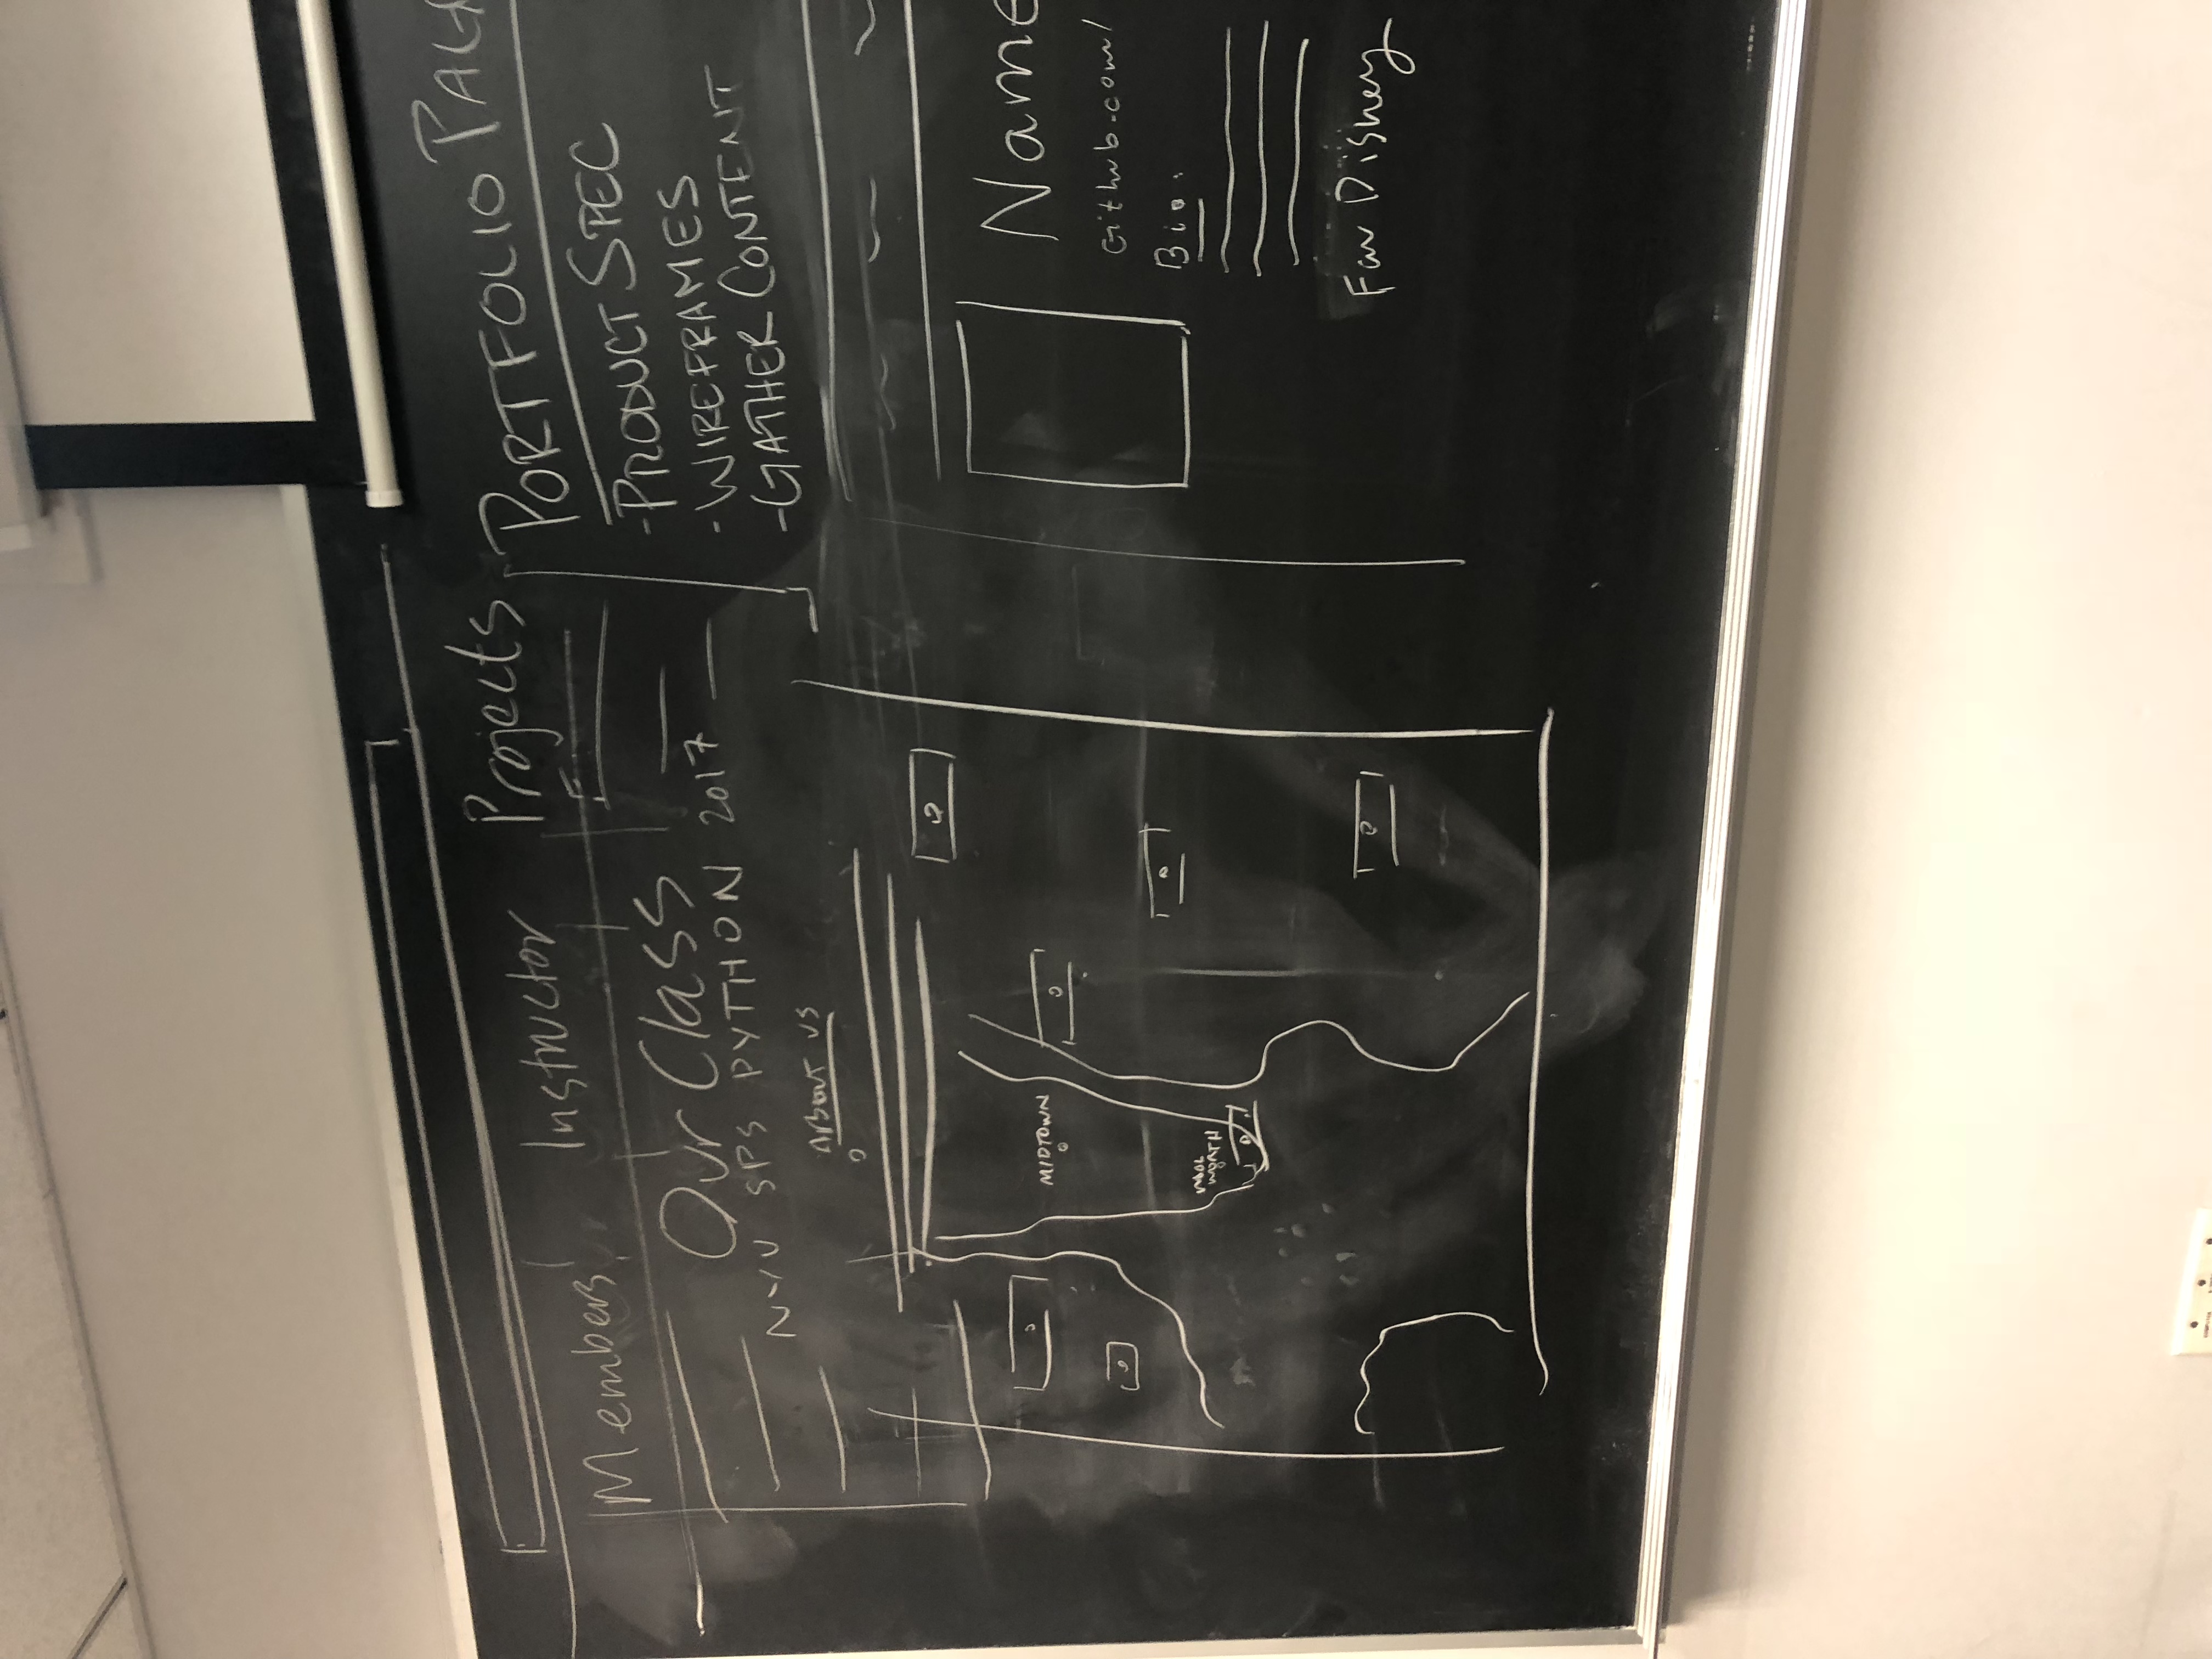 Members Instructor Projects
Our Class
NYU SPS PYTHON 2017
ABOUT US
MIDTOWN
WOOL
WORTH
PORTFOLIO PAG
- PRODUCT SPEC
- WIREFRAMES
- GATHER CONTENT
Name
Github.com/
Bio.
Fav Disney